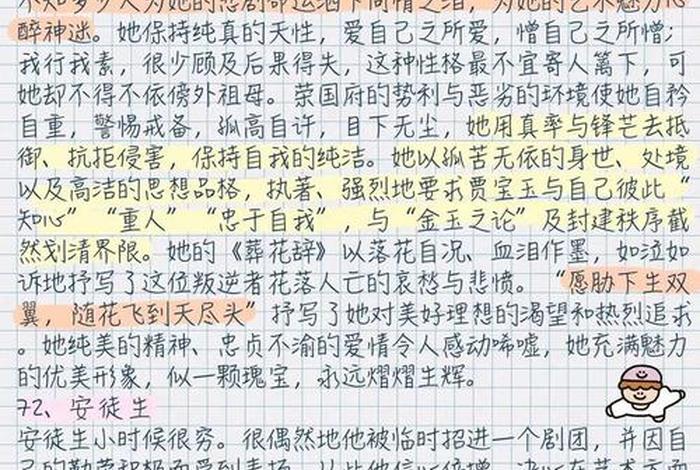 不知多少人为她的悲剧命运洒下同情之泪，为她的艺术魅力心
醉神迷。她保持纯真的天性，爱自己之所爱，憎自己之所憎；
我行我素，很少顾及后果得失，这种性格最不宜寄人篱下，可
她却不得不依傍外祖母。荣国府的势利与恶劣的环境使她自矜
自重，警惕戒备，孤高自许，目下无尘，她用真率与锋芒去抵
御、抗拒侵害，保持自我的纯洁。她以孤苦无依的身世、处境
以及高洁的思想品格，执著、强烈地要求贾宝玉与自己彼此“
知心”“重人”“忠于自我”，与“金玉之论”及封建秩序截
然划清界限。她的《葬花辞》以落花自况、血泪作墨，如泣如
诉地抒写了这位叛逆者花落人亡的哀愁与悲愤。“愿胁下生双
翼，随花飞到天尽头”抒写了她对美好理想的渴望和热烈追求
。她纯美的精神、忠贞不渝的爱情令人感动唏嘘，她充满魅力
的优美形象，似一颗瑰宝，永远熠熠生辉。
72、安徒生
安徒生小时候很穷。很偶然地他被临时招进一个剧团，并因自
己的勤劳和积极而受到表扬，从此他信心倍增，决心在艺术方面